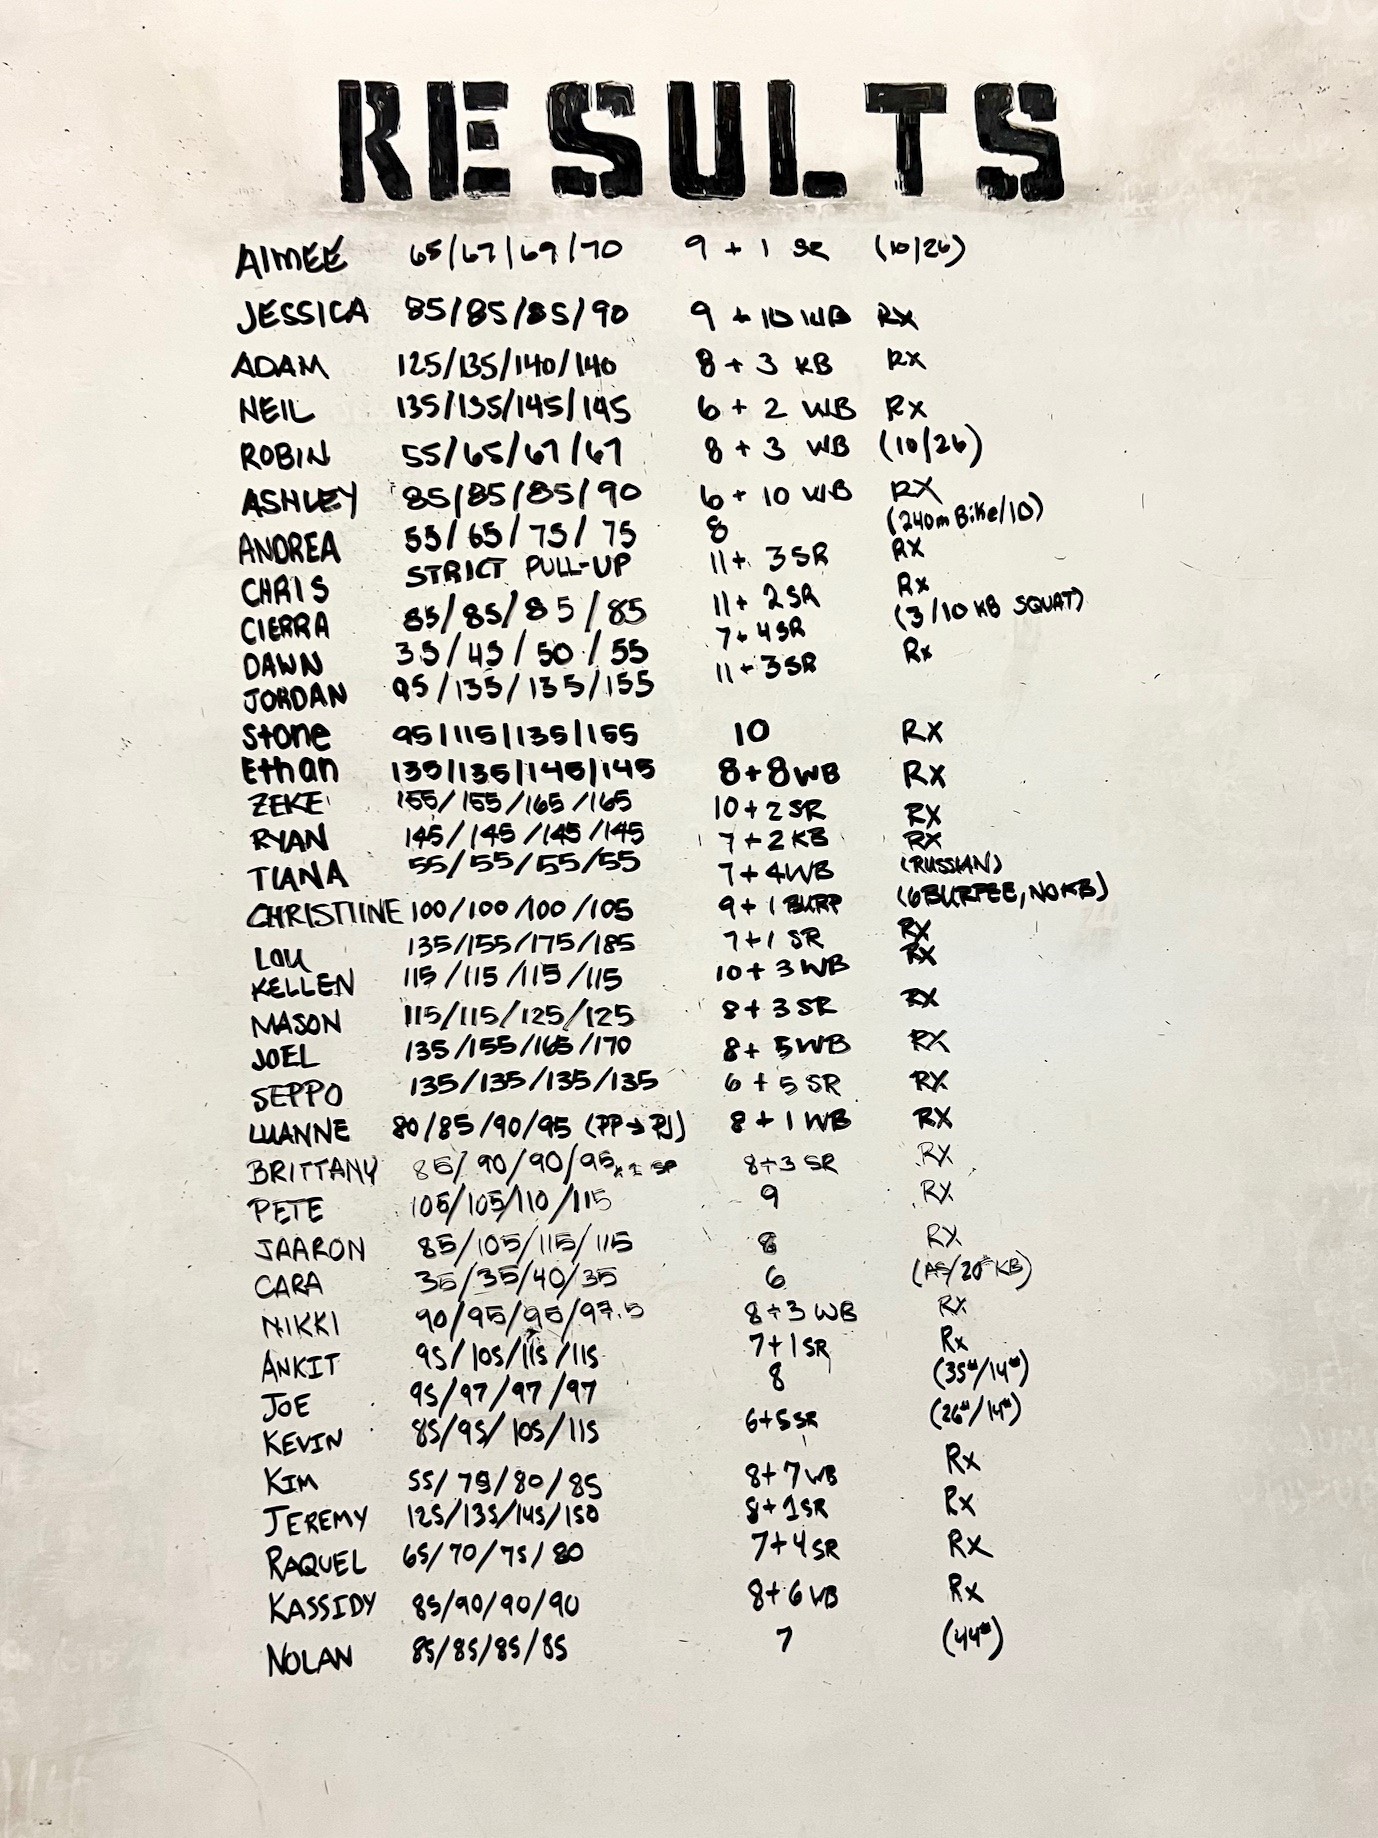 RESULTS
AIMEE 65/67/69/70 9 + 1 SR (10/26)
JESSICA 85/85/85/90 9 + 10 WB RX
ADAM 125/135/140/140 8 + 3 KB RX
NEIL 135/135/145/145 6 + 2 WB RX
ROBIN 55/65/67/67 8 + 3 WB (10/26)
ASHLEY 85/85/85/90 6 + 10 WB RX
ANDREA 55/65/75/75 8 (240m BiKe/10)
CHRIS STRICT PULL-UP 11+ 3SR RX
CIERRA 85/85/85/85 11+ 2SR Rx
DAWN 35/45/50/55 7+4SR (3/10 KB SQUAT)
JORDAN 95/135/135/155 11+3SR Rx
Stone 95/115/135/155 10 RX
Ethan 135/135/145/145 8+8WB RX
ZEKE 155/155/165/165 10+2SR RX
RYAN 145/145/145/145 7+2KB RX
TIANA 55/55/55/55 7+4WB (RUSSIAN)
CHRISTIINE 100/100/100/105 9+1 BURP (6BURPEE, NO KB)
LOU 135/155/175/185 7+1 SR RX
KELLEN 115/115/115/115 10+3WB RX
MASON 115/115/125/125 8+3SR RX
JOEL 135/155/165/170 8+5WB RX
SEPPO 135/135/135/135 6+5SR RX
LUANNE 80/85/90/95 (PP→PJ) 8+1WB RX
BRITTANY 85/90/90/95 8+3 SR RX
PETE 105/105/110/115 9 RX
JAARON 85/105/115/115 8 RX
CARA 35/35/40/35 6 (/20# KB)
NIKKI 90/95/95/97.5 8+3 WB RX
ANKIT 95/105/115/115 7+1SR Rx
JOE 95/97/97/97 8 (35#/14#)
KEVIN 85/95/105/115 6+5SR (26#/14#)
KIM 55/75/80/85 8+7WB Rx
JEREMY 125/135/145/150 8+1SR Rx
RAQUEL 65/70/75/80 7+4SR Rx
KASSIDY 85/90/90/90 8+6WB Rx
NOLAN 85/85/85/85 7 (44#)